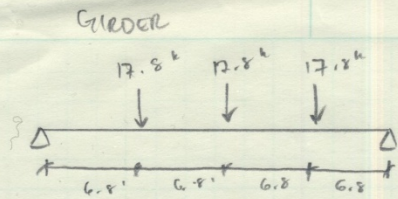 GIRDER
17.8k 17.8k 17.8k
6.8' 6.8' 6.8 6.8